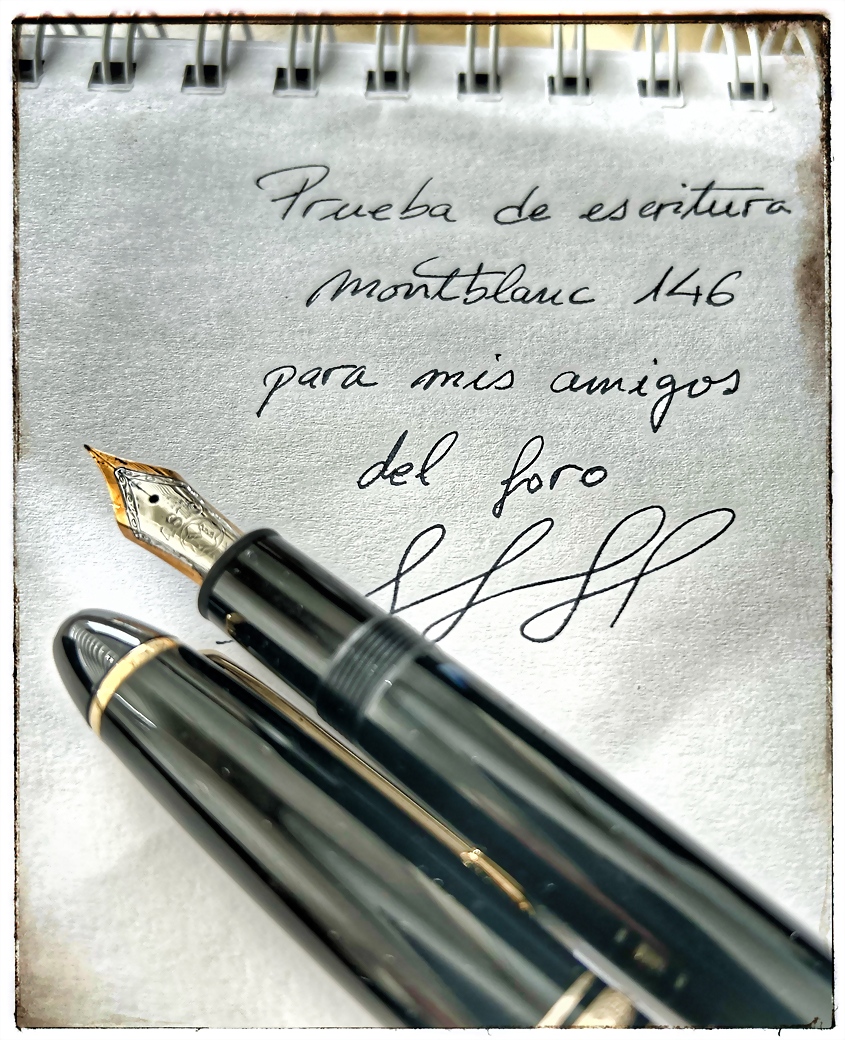 Prueba de escritura
montblanc 146
para mis amigos
del foro